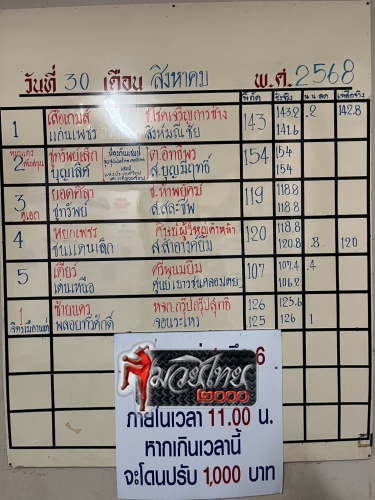 วันที่ 30 เดือน สิงหาคม พ.ศ. 2568
พิกัด ชั่งจริง น.น.ลด เหลือจริง
1 เสือเกมส์ ช.โชคเจริญการช่าง 143 143.2 .2 142.8
แก่นเพชร สิงห์มณีชัย 141.6
2 ชูทรัพย์เล็ก ต.อิทธิพร 154 154
บุญเลิศ ส.บุญมีฤทธิ์ 154
3 ยอดศิลา ช.ห้าพยัคฆ์ 119 118.8
คู่เอก ชูทรัพย์ ส.สละชีพ 118.8
4 หยกเพชร 120 118.8
ขุนแดนเล็ก ส.สำอางค์ยิม 120.8 .8 120
5 เดียร์ ศรีพูนยิม 107 107.4 .4
เด่นเหนือ 106.2
1 หจก.กรุ๊ปกรุ๊ปสุทธิ 126 125.6
พลอยทวีศักดิ์ จอมระเหว 125 126 1
มวยไทย
๒๐๐๐
ภายในเวลา 11.00 น.
หากเกินเวลานี้
จะโดนปรับ 1,000 บาท